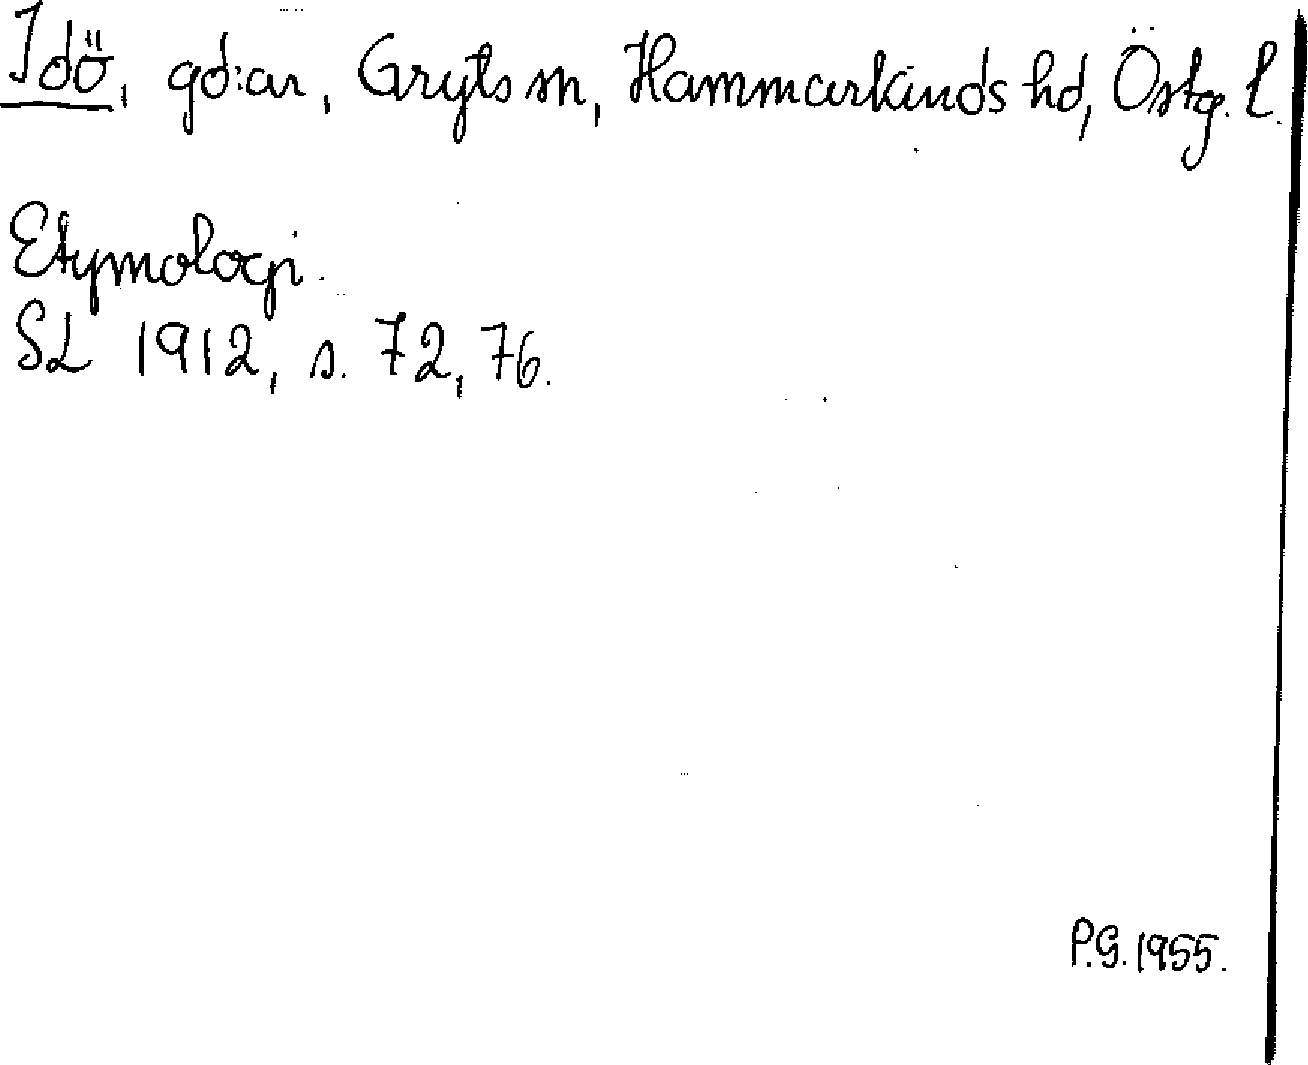 Idö, gd:ar, Gryts sn, Hammarkinds hd, Östg. l.
Etymologi.
SL 1912, s. 72, 76.
P.G. 1955.